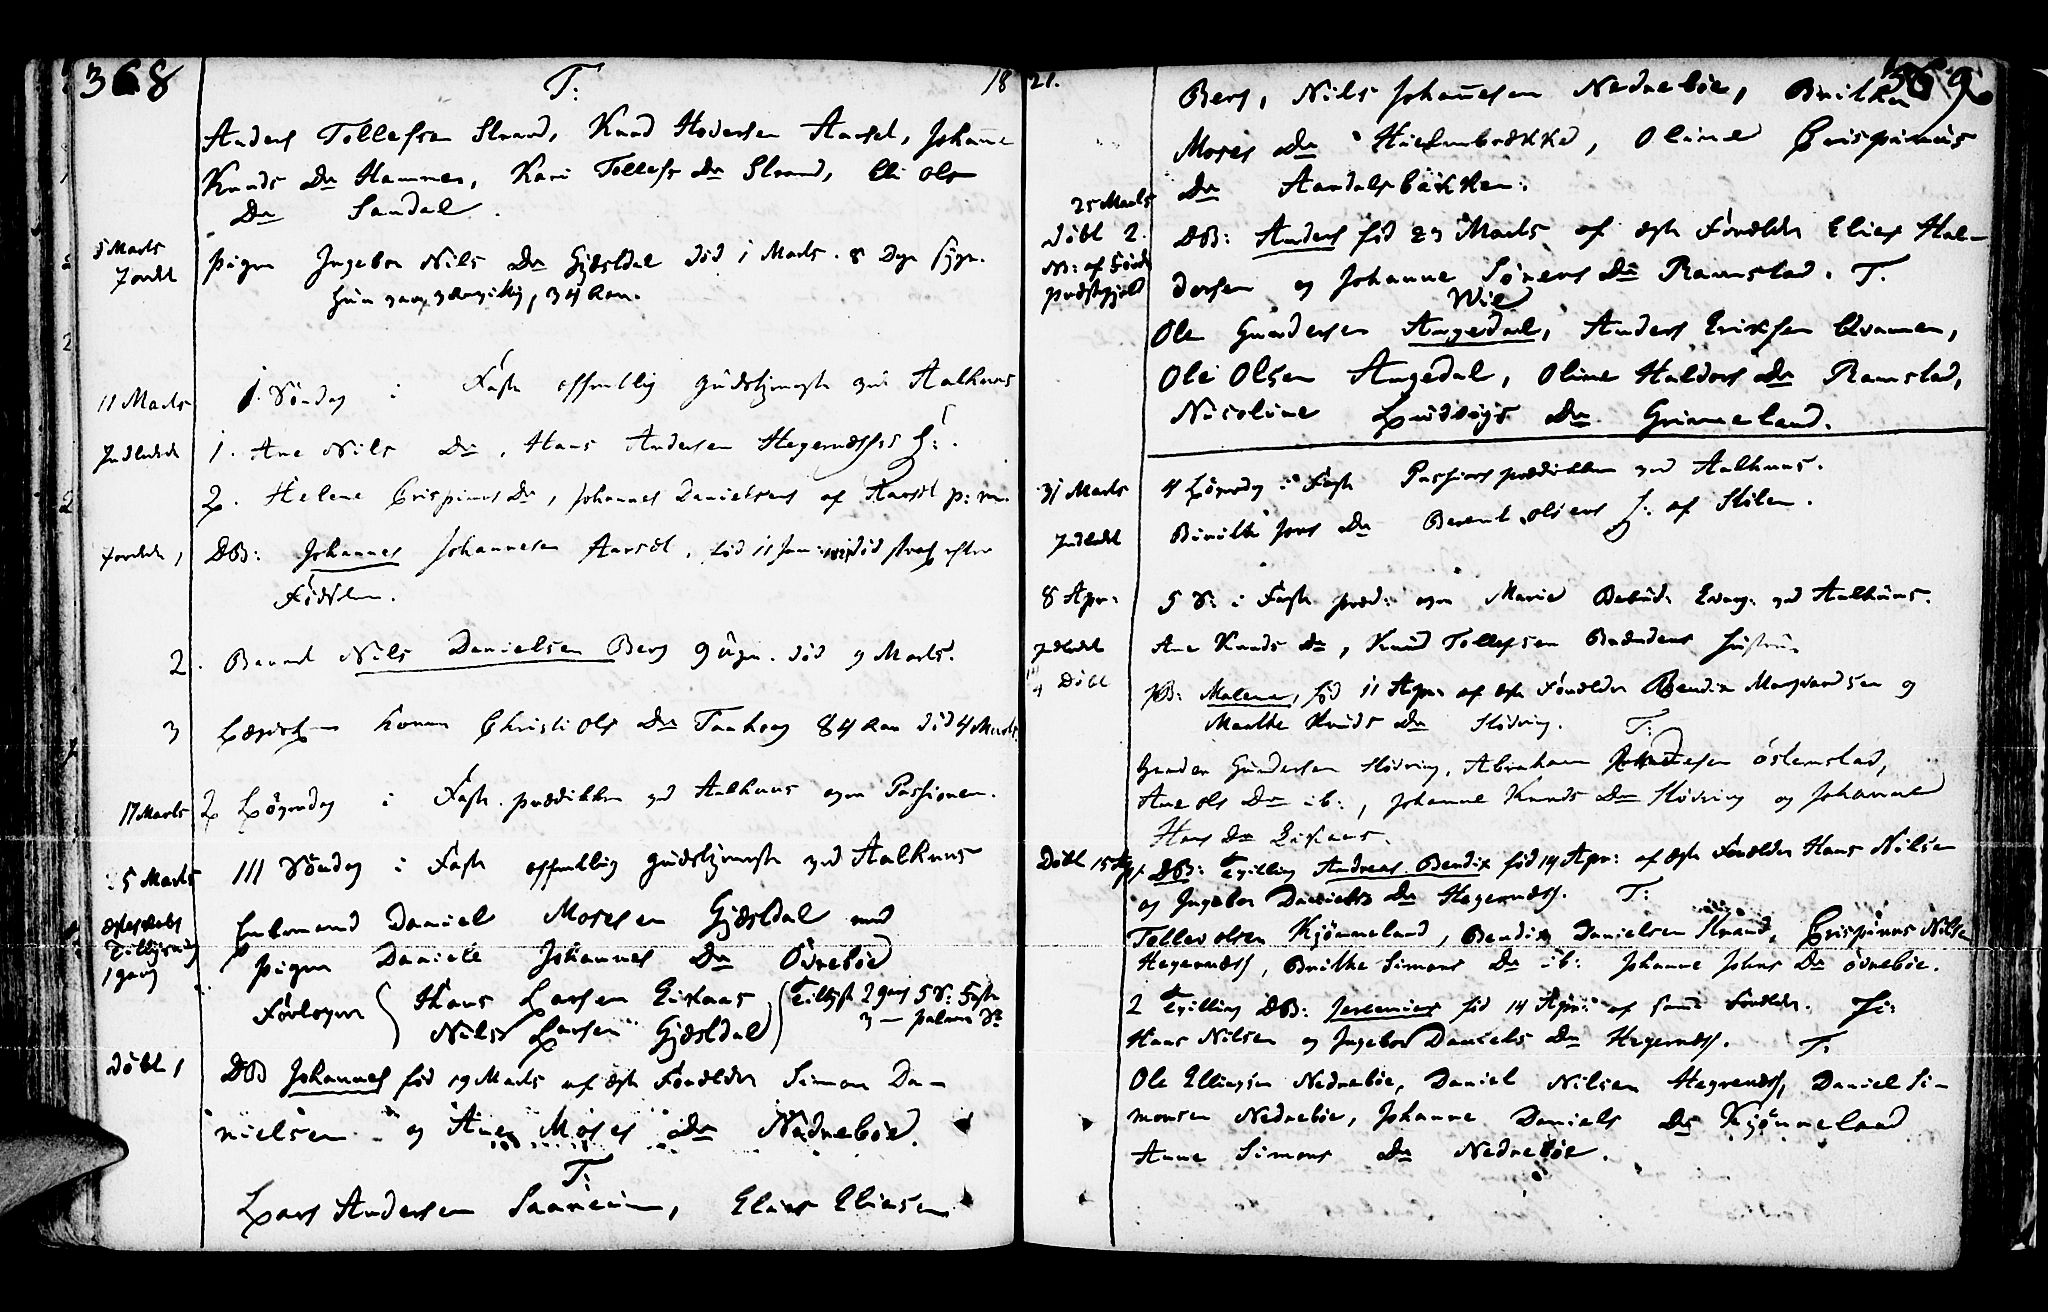 368
T:
18
Anders Tollefsen Strand, Knud Aarset, Johanne
Knuds Dr Hammer, Kari Tollefs Dr Strand, Eli Ols
Dr Sandal.
5 Marts
Jordet
pigen Ingebor Nils Dr Gjæsldal död 1 Marts. 8 Dage syg.
34 Aar.
11 Marts
1. Söndag i Faste offentlig gudstjeneste ved Aalhuus
Indledede
1. Ane Nils Dr, Hans Andersen Hegernæsses H:
2. Helene Crispinus Dr, Johannes Danielsens af Aarset
Jordede 1
DB: Johannes Johannesen Aarset, föd 11 Jan: död strax efter
Födselen.
2. Barnet Nils Danielsen Berg 9 Uger. död 9 Marts.
3
Konen Christi Ols Dr 84 Aar död 4 Marts.
17 Marts
2 Löverdag i Faste prædikken ved Aalhuus over Passionen.
25 Marts
III Söndag i Faste offentlig gudstjeneste ved Aalhuus
Tillysning
1 gang
Enkemand Daniel Mosesen Gjæsldal med
pigen Daniele Johannes Dr Övreböe
Forlovere Hans Larsen Eikaas
Nils Larsen Gjæsldal
Tillyst 2 gang 5 S: Faste
3 — palme S:
döbt 1
DB Johannes föd 19 Marts af ægte Forældre Simon Da-
nielsen og Ane Moses Dr Nedreböe.
T:
Lars Andersen Saareim, Elias Eliesen
21.
369
Berg, Nils Johannesen Nedreböe, Brithe
Moses Dr Hielmbrække, Oline Crispinus
Dr Aardalsbakken.
25 Marts
döbt 2.
DB: Anders föd 23 Marts af ægte Forældre Elias Hal-
dorsen og Johanne Sörens Dr Ramstad. T.
Ole Gundersen Angedal, Anders Eriksen Qvamen,
Wie
Ole Olsen Angedal, Oline Haldors Dr Ramstad,
Nicoline Ludvigs Dr Grimmeland.
31 Marts
4 Löverdag i Faste Passions prædikken ved Aalhuus.
Indledet
Brithe Jens Dr Berent Olsens H: af Stölen.
8 Apr:
5 S: i Faste præd: over Marie Bebud: Evang: ved Aalhuus.
Indledet
Ane Knuds Dr, Knud Tollefsen Brændens Hustru
döbt
PB: Malene, föd 11 Apr: af ægte Forældre Bendix Mangvardsen og
Marthe Knuds Dr Slövring. T:
Gunder Gundersen Slövring, Abraham Östenstad,
Ane Ols Dr ib:, Johanne Knuds Dr Slövring og Johanne
Hans Dr Eikaas.
Döbt 15 Apr
1. DB: Tvilling Andreas Bendix föd 14 Apr: af ægte Forældre Hans Nilsen
og Ingebor Daniels Dr Hegernæss. T:
Tollev Olsen Kjönneland, Bendix Danielsen Strand, Crispinus Nilsen
Hegernæss, Brithe Simons Dr ib: Johanne Johns Dr Övreböe.
2 Tvilling DB: Jeremias föd 14 Apr: af samme Forældre.
Hans Nilsen og Ingebor Daniels Dr Hegernæss. T:
Ole Ellingsen Nedreböe, Daniel Nilsen Hegernæss, Daniel Si-
monsen Nedreböe, Johanne Daniels Dr Kjönneland
Anne Simons Dr Nedreböe.